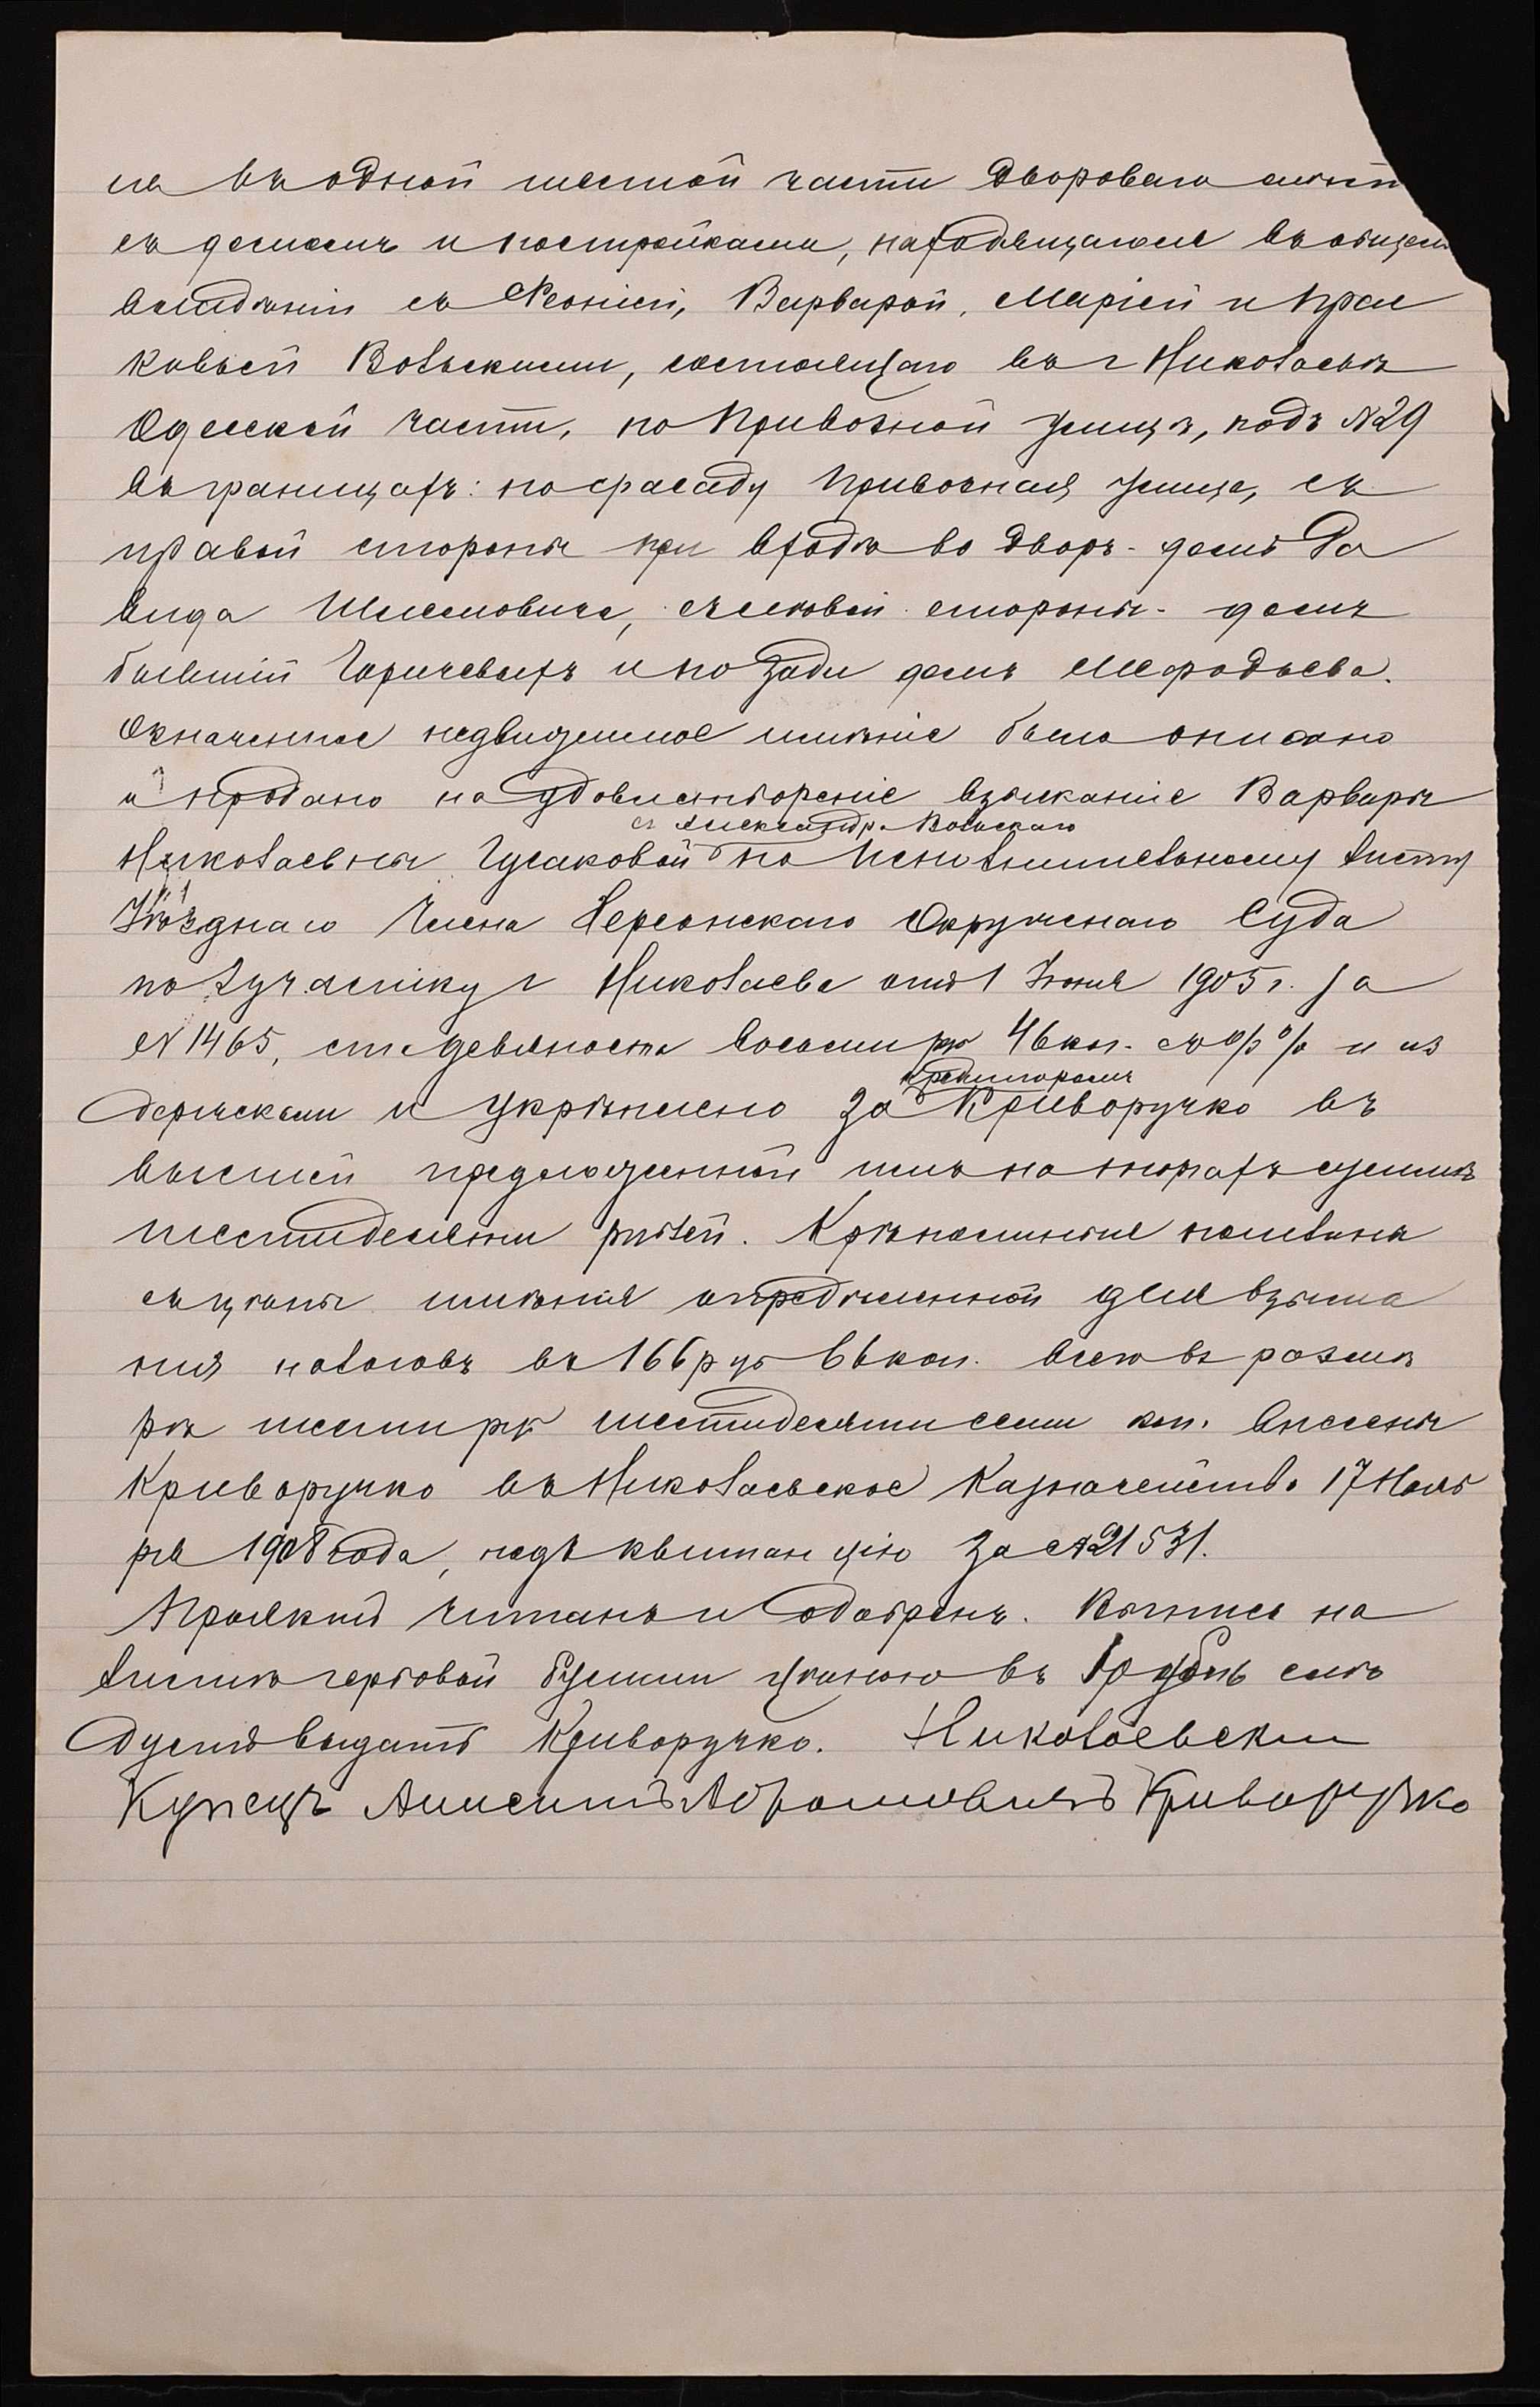 ся въ одной шестой части двороваго мѣст
съ домомъ и постройками, находящагося въ общемъ
владѣніи съ Ѳеоніей, Варварой, Маріей и Прас
ковьей Вольскими, состоящаго въ г Николаевѣ
Одесской части, по Привозной улицѣ, подъ №29
въ границахъ: по фасаду Привозная улица, съ
правой стороны при входѣ во дворъ - домъ Да
вида Шиссмовича, съ лѣвой стороны - домъ
бывшій Горичевыхъ и по зади домъ Мефодьева.
Означенное недвижимое имѣніе было описано
и продано на удовлетвореніе взысканіе Варвары
съ Александр. Вольскаго
Николаевны Гусаковой по исполнительному листу
Уѣзднаго Члена Херсонскаго Окружнаго Суда
по 2 участку г Николаева отъ 1 Іюня 1905 г. за
№1465, сто девяносто восемь руб 46 коп. съ %% и из
кредиторомъ
держками и укрѣплено за Криворучко въ
высшей предложенной имъ на торгахъ суммѣ
шестидесяти рублей. Крѣпостныя пошлины
съ цѣны имѣнія опредѣленной для взыма
нія налоговъ въ 166 руб 66 коп. всего въ размѣ
рѣ шести руб шестидесяти семи коп. внесены
Криворучко въ Николаевское Казначейство 17 Нояб
ря 1908 года, подъ квитанцію за №21531.
Проэктъ читанъ и одобренъ. Выпись на
листѣ гербовой бумаги цѣною въ 1 рубль слѣ
дуетъ выдать Криворучко. Николаевскій
Купецъ Анисимъ Абрамовичъ Криворучко